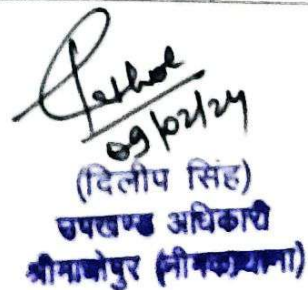 09/02/24
(दिलीप सिंह)
उपखण्ड अधिकारी
श्रीमाधोपुर (नीमकाथाना)